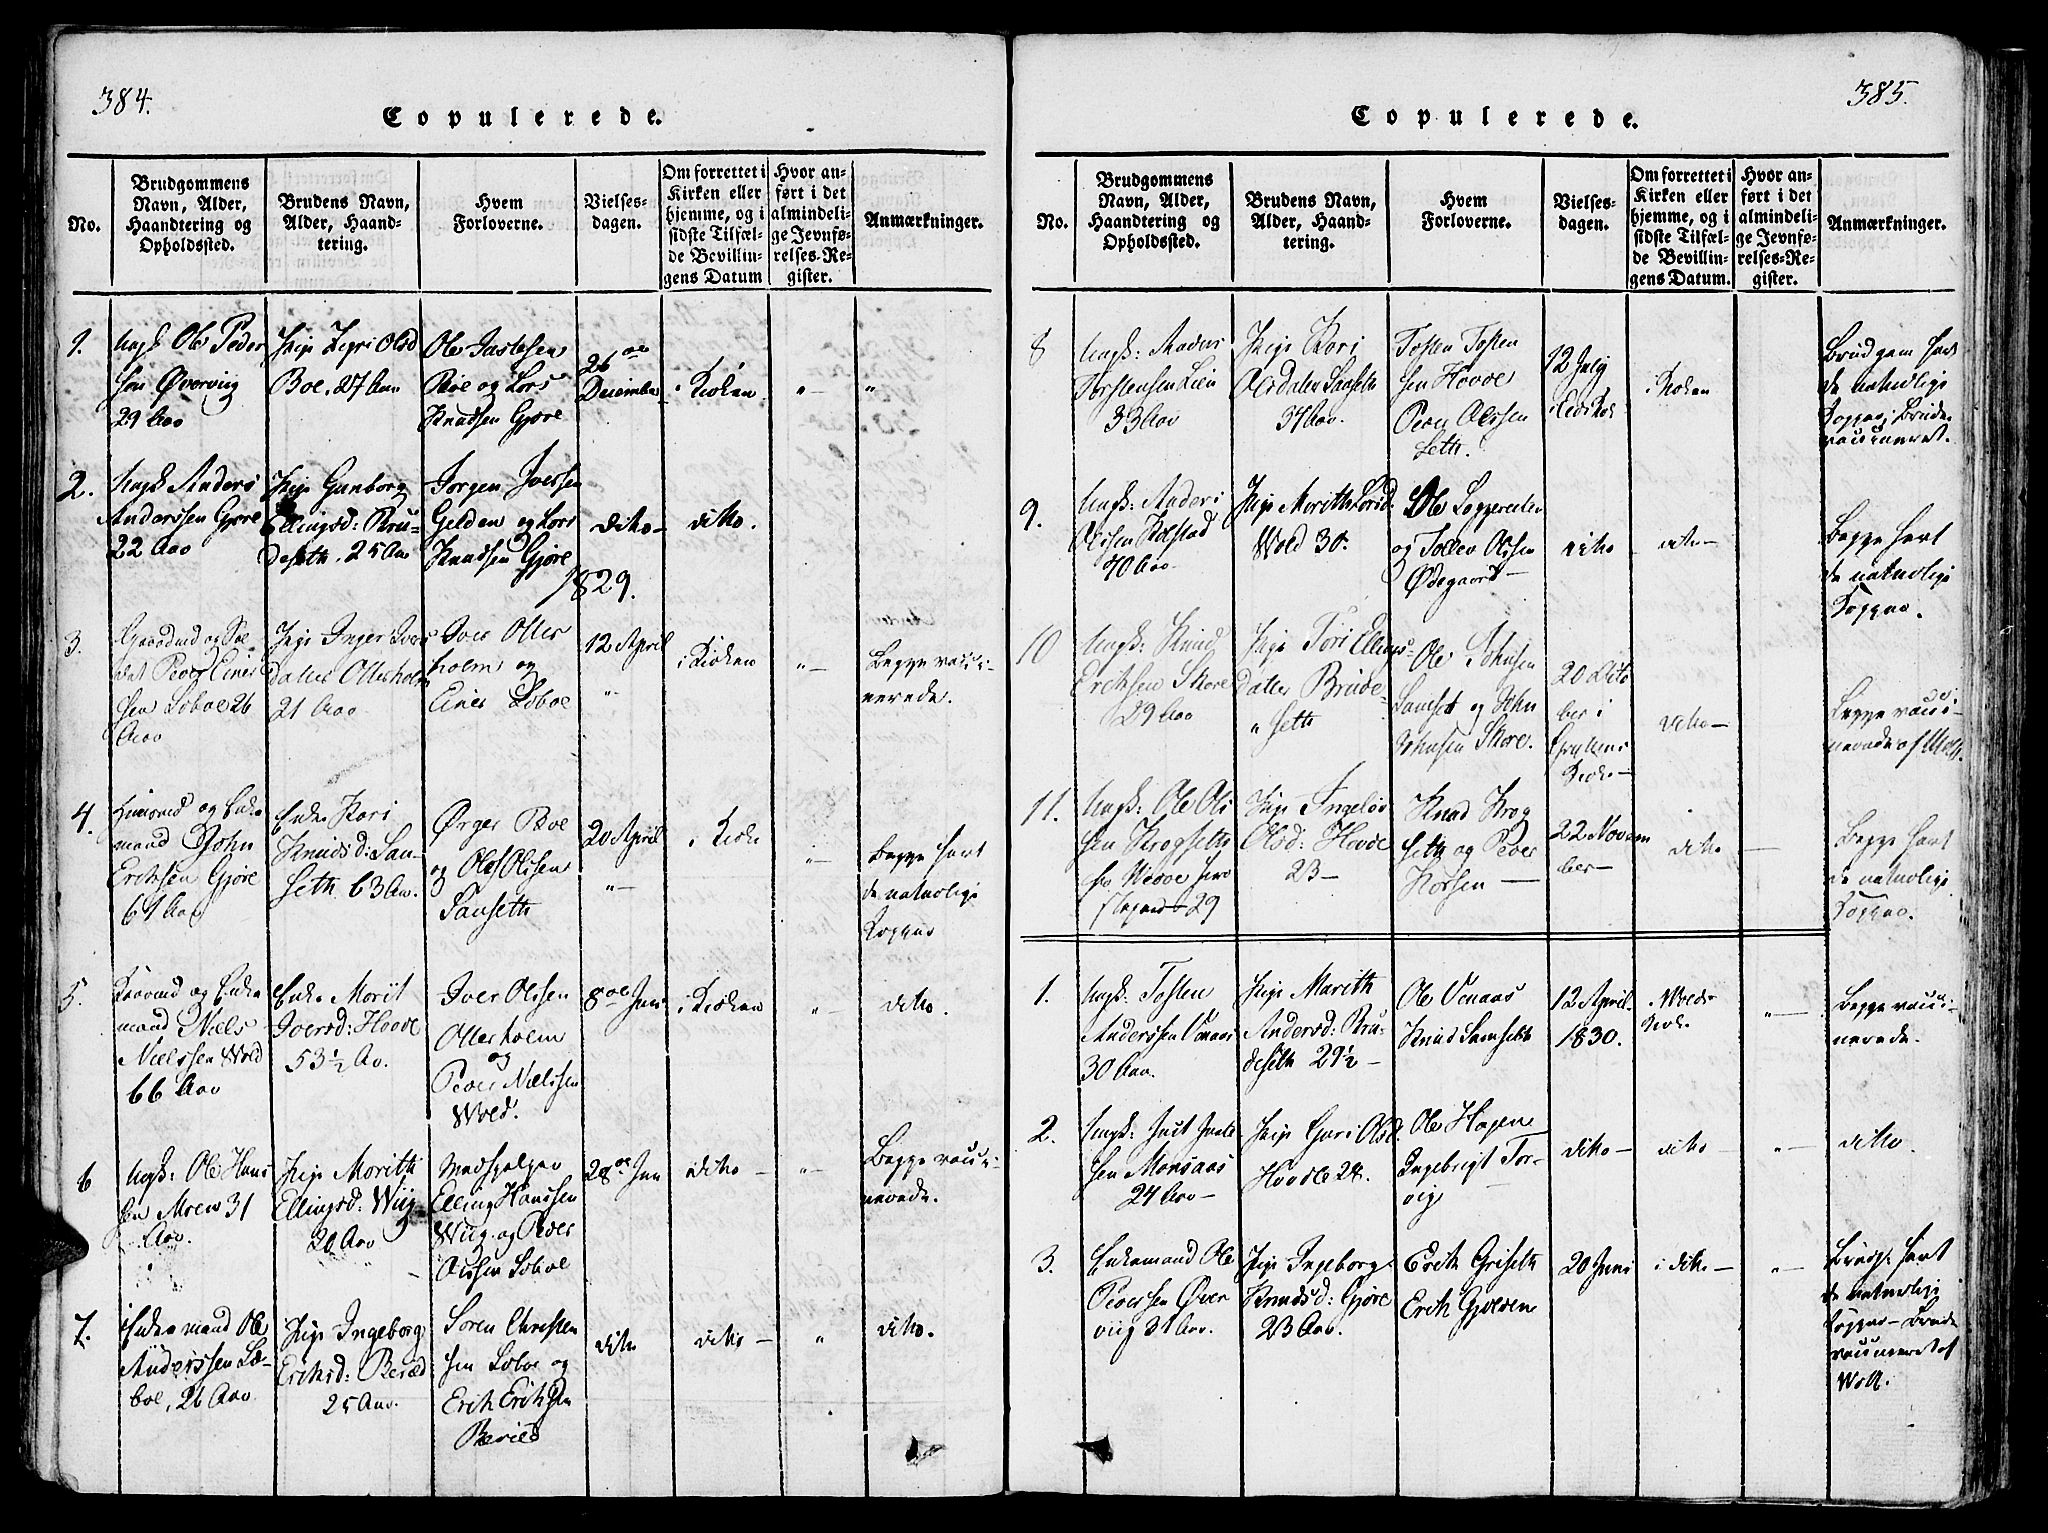 384.
Copulerede.
No.
Brudgommens
Navn, Alder,
Haandtering og
Opholdssted.
Brudens Navn,
Alder, Haand-
tering.
Hvem
Forloverne.
Vielses-
dagen.
Om forrettet i
Kirken eller
hjemme, og i
sidste Tilfæl-
de Bevillin-
gens Datum
Hvor an-
ført i det
almindeli-
ge Jevnfø-
relses-Re-
gister.
Anmærkninger.
1.
Ungk Ole Peder
sen Øverviig
29 Aar
Pige Sigri Olsd
Boe, 27 Aar
Ole Jastesen
Boe og Lars
Knudsen Gjøre
26de
December
i Kirken
"
"
2.
Ungk Anders
Anderssen Gjøre
22 Aar
Pige Gunborg
Ellingsd: Bru-
deseth, 25 Aar
Jørgen Iverssen
Gelden og Lars
Knudsen Gjøre
dito
dito.
1829.
3.
og Sol
dat Peder Einer
sen Løboe 26
Aar
Pige Inger Ivers
datter Otterholm
21 Aar
Iver Otter
holm og
Einer Løboe
12 April
"
i Kirken
"
Begge vacci-
nerede.
4.
Huusmd og Enke
mand John
Erichsen Gjøre
61 Aar
Enke Kari
Knudsd: San-
seth 63 Aar.
Ørger Boe
og Ole Olssen
Sanseth
20 April
"
i Kirke
"
Begge havt
de naturlige
Kopper
5.
Enke
mand Niels
Nielssen Wold
66 Aar
Enke Morit
Iversd: Hovde
53 1/2 Aar.
Iver Olssen
Otterholm
og
Peder Nielssen
Wold.
8de Jun
i Kirken
"
dito.
6
Ungk: Ole Hans
sen Moen 31
Aar
Pige Morith
Ellingsd: Wiig
20 Aar
Elling Hanssen
Wiig og Peder
Olssen Løboe
28de Jun
dito
"
Begge vacci-
nerede.
7.
Enkemand Ole
Anderssen Lø-
boe, 26 Aar
Pige Ingeborg
Erichsd: Berild
25 Aar.
Soren Christen
sen Løboe og
Erich Erichsen
Berild
dito
dito
"
dito.
385.
Copulerede.
No.
Brudgommens
Navn, Alder,
Haandtering og
Opholdssted.
Brudens Navn,
Alder, Haand-
tering.
Hvem
Forloverne.
Vielses-
dagen.
Om forrettet i
Kirken eller
hjemme, og i
sidste Tilfæl-
de Bevillin-
gens Datum.
Hvor an-
ført i det
almindeli-
ge Jevnfø-
relses-Re-
gister.
Anmærkninger.
8
Ungk: Anders
Torstensen Lien
33 Aar
Pige Kari
Olsdatter Sanseth
34 Aar.
Tosten Tosten
sen Hovde
Peder Olssen
Seth.
12 July
i Kirken
Brudgom havt
de naturlige
Kopper, Bruden
vaccineret.
9.
Ungk: Anders
Olssen Kolstad
40 Aar
Pige Morith Larsd:
Wold 30.
Ole
og Tollev Olssen
Ødegaard
dito
dito
Begge havt
de naturlige
Kopper.
10
Ungk: Knud
Erichsen Skore
29 Aar
Pige Tori Ellings
datter Brude-
"seth
Ole Johnsen
Sanseth og John
Johnsen Skore.
20 Octo
ber i
Kirke
dito
Begge vacci-
nerede af Woll.
11.
Ungk: Ole Ols
sen Krogseth
29
Pige Ingeløv
Olsd: Hovde
23
Knud Krog
seth og Peder
Korsen
22 Novem
ber
dito
Begge havt
de naturlige
Kopper.
1.
Ungk: Tosten
Anderssen Venaas
30 Aar.
Pige Marith
Andersd: Bru-
deseth 29 1/2
Ole Venaas
Knud Sanseth
12 April
1830.
i Wolds
Kirk.
"
Begge vacci-
nerede.
2.
Ungk: Just
sen Monsaas
24 Aar
Pige Guri Olsd.
Hovde 28.
Ole Hagen
Ingebrigt Tor-
vig
dito
dito
"
dito.
3.
Enkemand Ole
Pedersen Øver
viig 31 Aar.
Pige Ingeborg
Knudsd: Gjøre
23 Aar.
Erich Griseth
Erich Gjelden
20 Juni
i dito
"
Brudg. havt
de naturlige
Kopper – Brude
vaccineret af
Woll.